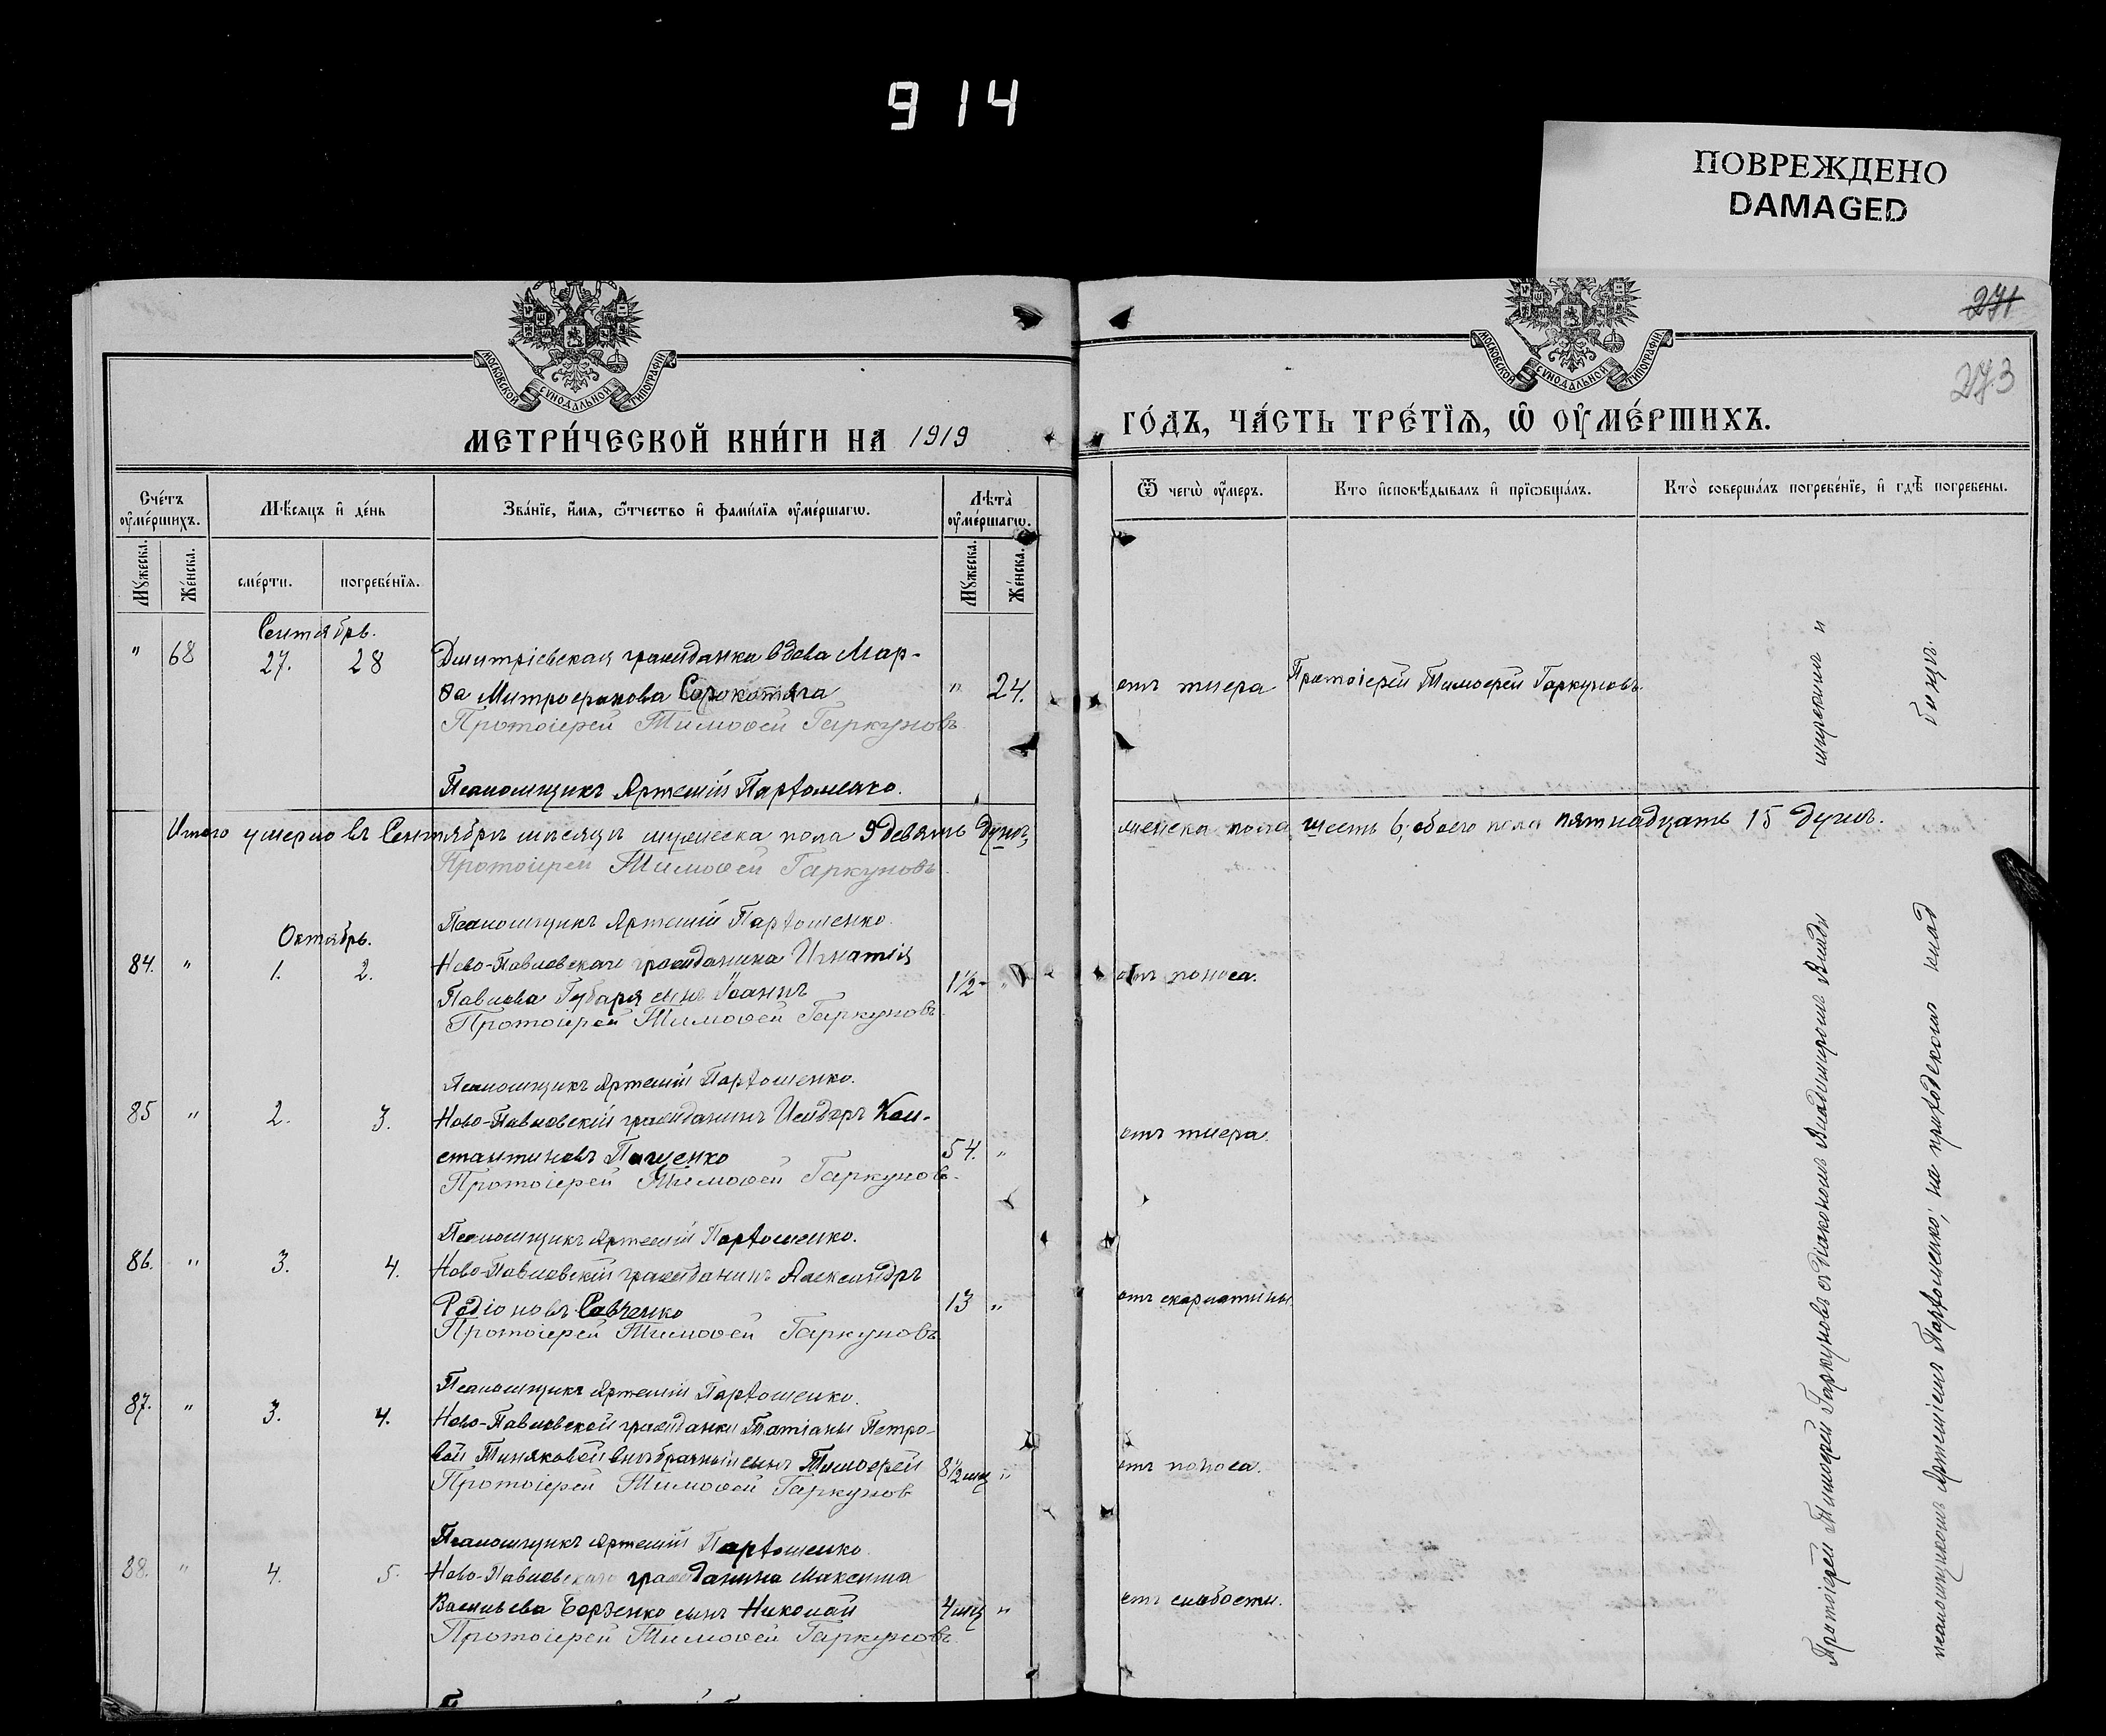 914
ПОВРЕЖДЕНО
DAMAGED
271
273
МОСКОВСКОЙ СѴНОДАЛЬНОЙ ТИПОГРАФІИ
МОСКОВСКОЙ СѴНОДАЛЬНОЙ ТИПОГРАФІИ
МЕТРИ́ЧЕСКОЙ КНИ́ГИ НА 1919
ГО́ДЪ, ЧА́СТЬ ТРЕ́ТЇѦ, Ѡ҆ ОУ҆МЕ́РШИХЪ.
Сче́тъ оу҆ме́ршихъ.
Мѣ́сяцъ и҆ де́нь
Зва́нїе, и҆́мя, ѻ҆́тчество и҆ фами́лїя оу҆ме́ршагѡ.
Лѣ́та оу҆ме́ршагѡ.
Ѿ чегѡ̀ оу҆́меръ.
Кто̀ и҆сповѣ́дывалъ и҆ прїѡбща́лъ.
Кто̀ соверша́лъ погребе́нїе, и҆ гдѣ̀ погребены.
Мꙋ́жеска.
Же́нска.
сме́рти.
погребе́нїя.
Мꙋ́жеска.
Же́нска.
Сентябрь.
" 68 27. 28 Дмитріевская гражданка вдова Мар-
ѳа Митрофанова Сорокотяга " 24. отъ тифа Протоіерей Тимофей Гаркуновъ.
Протоіерей Тимоѳей Гаркуновъ.
Псаломщикъ Артемій Пархоменко.
Итого умерло въ Сентябрѣ мѣсяцѣ мужеска пола 9 девять душъ, женска пола шесть 6, обоего пола пятнадцать 15 душъ.
Протоіерей Тимоѳей Гаркуновъ.
Псаломщикъ Артемій Пархоменко.
Октябрь.
84. " 1. 2. Ново-Павловскаго гражданина Игнатія
Павлова Губаря сынъ Іоаннъ 1½ " отъ поноса.
Протоіерей Тимоѳей Гаркуновъ.
Псаломщикъ Артемій Пархоменко.
85 " 2. 3. Ново-Павловскій гражданинъ Исидоръ Кон-
стантиновъ Пащенко 54. " отъ тифа.
Протоіерей Тимоѳей Гаркуновъ.
Псаломщикъ Артемій Пархоменко.
86. " 3. 4. Ново-Павловскій гражданинъ Александръ
Родіоновъ Савченко 13 " отъ скарлатины.
Протоіерей Тимоѳей Гаркуновъ
Псаломщикъ Артемій Пархоменко.
87. " 3. 4. Ново-Павловской гражданки Татіаны Петро-
вой Тиняковой внѣбрачный сынъ Тимофей 8½ мц " отъ поноса.
Протоіерей Тимоѳей Гаркунов
Псаломщикъ Артемій Пархоменко.
88. " 4. 5. Ново-Павловскаго гражданина Максима
Васильева Борченко сынъ Николай 4 мц " отъ слабости.
Протоіерей Тимоѳей Гаркуновъ.
Протоіерей Тимофей Гаркуновъ съ діакономъ Владиміромъ
псаломщикомъ Артеміемъ Пархоменко; на приходскомъ клад
бищѣ.